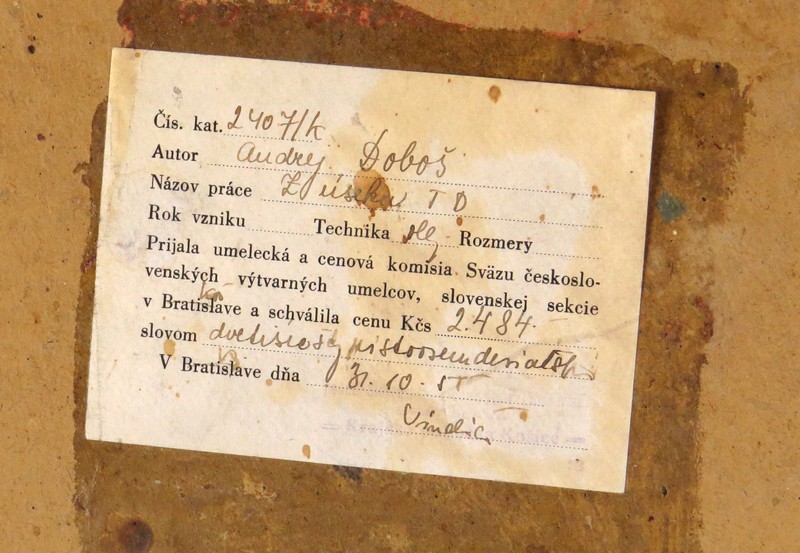 Čís. kat. 2407/k
Autor Andrej Doboš
Názov práce Z úseku T D
Rok vzniku Technika olej Rozmery
Prijala umelecká a cenová komisia Sväzu českoslo-
venských výtvarných umelcov, slovenskej sekcie
v Bratislave a schválila cenu Kčs 2.484.-
slovom
V Bratislave dňa 31.10.55